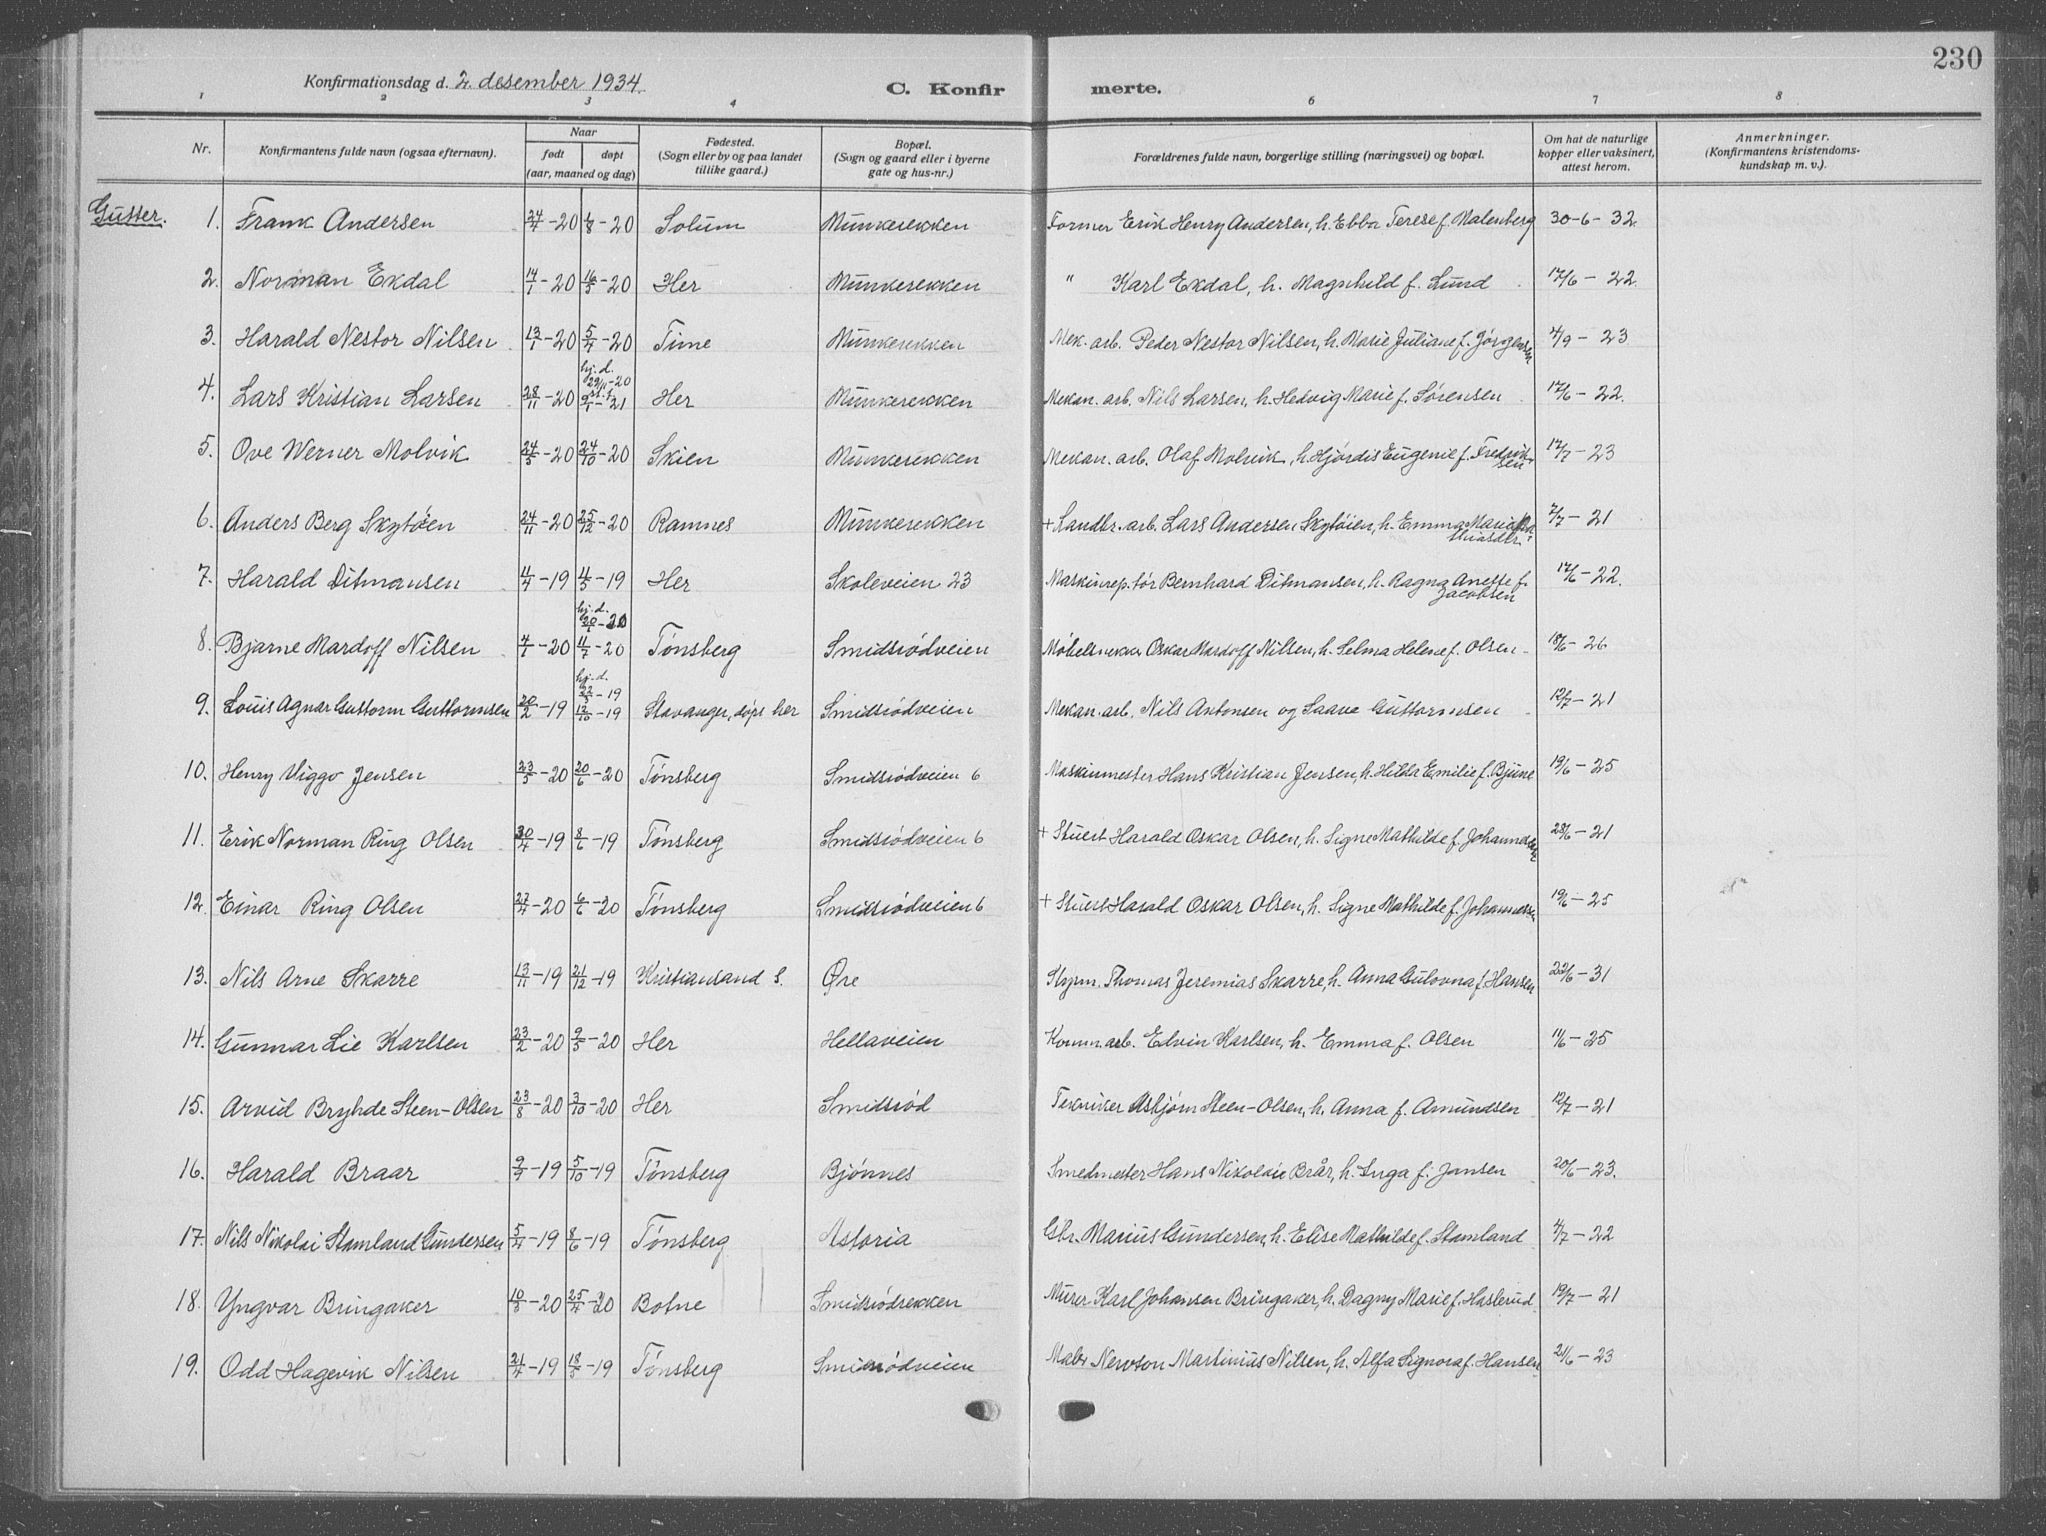 230
Konfirmationsdag d. 2. desember 1934.
C. Konfir merte.
1 2 3 4 5 6 7 8
Nr. Konfirmantens fulde navn (ogsaa efternavn). Naar født døpt (aar, maaned og dag) Fødested. (Sogn eller by og paa landet tillike gaard.) Bopæl. (Sogn og gaard eller i byerne gate og hus-nr.) Forældrenes fulde navn, borgerlige stilling (næringsvei) og bopæl. Om hat de naturlige kopper eller vaksinert, attest herom. Anmerkninger. (Konfirmantens kristendoms-kundskap m. v.).
Gutter.
1. Frank Andersen 24/4-20 1/8-20 Solum Munkerekken Former Erik Henry Andersen, h. Ebba Terese f. Malmberg 30-6-32.
2. Norman Ekdal 14/1-20 16/5-20 Her Munkerekken " Karl Ekdal, h. Magnhild f. Lund 17/6-22.
3. Harald Nestor Nilsen 13/1-20 5/4-20 Time Munkerekken Mek. arb. Peder Nestor Nilsen, h. Marie Juliane f. Jørgensen 4/9-23
4. Lars Kristian Larsen 28/11-20 hj. d. 29/11-20 9/1-21 Her Munkerekken Mekan. arb. Nils Larsen, h. Hedvig Marie f. Sørensen 17/6-22.
5. Ove Werner Molvik 24/5-20 24/10-20 Skien Munkerekken Mekan. arb. Olaf Molvik, h. Hjørdis Eugenie f. Fredriksen 17/7-23
6. Anders Berg Skytøen 24/11-20 25/12-20 Ramnes Munkerekken + Landbr. arb. Lars Andersen Skytøien, h. Emma Marie 7/7-21
7. Harald Ditmansen 11/4-19 4/5-19 Her Skoleveien 23 Maskinrep.tør Bernhard Ditmansen, h. Ragna Anette f. Jacobsen 17/6-22.
8. Bjarne Mardoff Nilsen 4/1-20 hj. d. 20/1-20 11/7-20 Tønsberg Smidsrødveien Møbelsnekker Oskar Mardoff Nilsen, h. Selma Helene f. Olsen 18/6-26
9. Louis Agnar Guttorm Guttormsen 20/2-19 hj. d. 22/3-19 12/10-19 Stavanger, døpt her Smidsrødveien Mekan. arb. Nils Antonsen og Saave Guttormsen 12/7-21
10. Henry Viggo Jensen 23/5-20 20/6-20 Tønsberg Smidsrødveien 6 Maskinmester Hans Kristian Jensen, h. Hilda Emilie f. Bjune 19/6-25
11. Erik Norman Ring Olsen 30/4-19 8/6-19 Tønsberg Smidsrødveien 6 + Stuert Harald Oskar Olsen, h. Signe Mathilde f. Johannessen 28/6-21
12. Einar Ring Olsen 27/4-20 6/6-20 Tønsberg Smidsrødveien 6 + Stuert Harald Oskar Olsen, h. Signe Mathilde f. Johannessen 19/6-25
13. Nils Arne Skarre 13/11-19 21/12-19 Kristiansand S. Øre Thomas Jeremias Skarre, h. Anna Gulovna f. Hansen 22/6-31
14. Gunnar Lie Karlsen 23/2-20 9/5-20 Her Hellaveien Komm. arb. Edvin Karlsen, h. Emma f. Olsen 11/6-25
15. Arvid Bryhde Steen-Olsen 23/8-20 3/10-20 Her Smidsrød Tekniker Asbjørn Steen-Olsen, h. Anna f. Amundsen 12/7-21
16. Harald Braar 9/9-19 5/10-19 Tønsberg Bjønnes Smedmester Hans Nikolai Brår, h. Inga f. Jansen 20/6-23.
17. Nils Nikolai Stamland Gundersen 5/4-19 8/6-19 Tønsberg Astoria Gbr. Marius Gundersen, h. Elise Mathilde f. Stamland 4/7-22
18. Yngvar Bringaker 10/3-20 25/4-20 Botne Smidsrødrekken Murer Karl Johansen Bringaker, h. Dagny Marie f. Haslerud 19/7-21
19. Odd Hagevik Nilsen 21/4-19 18/5-19 Tønsberg Smidsrødveien Maler Newton Martinius Nilsen, h. Alfa Signora f. Hansen 21/6-23